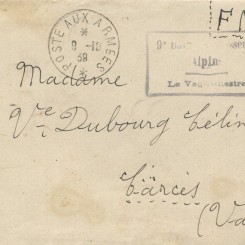 POSTE AUX ARMÉES
9 -12
39
F.M
9e
Alpins
Le Vaguemestre
Madame
Vve Dubourg Céline
Carcès
(Va